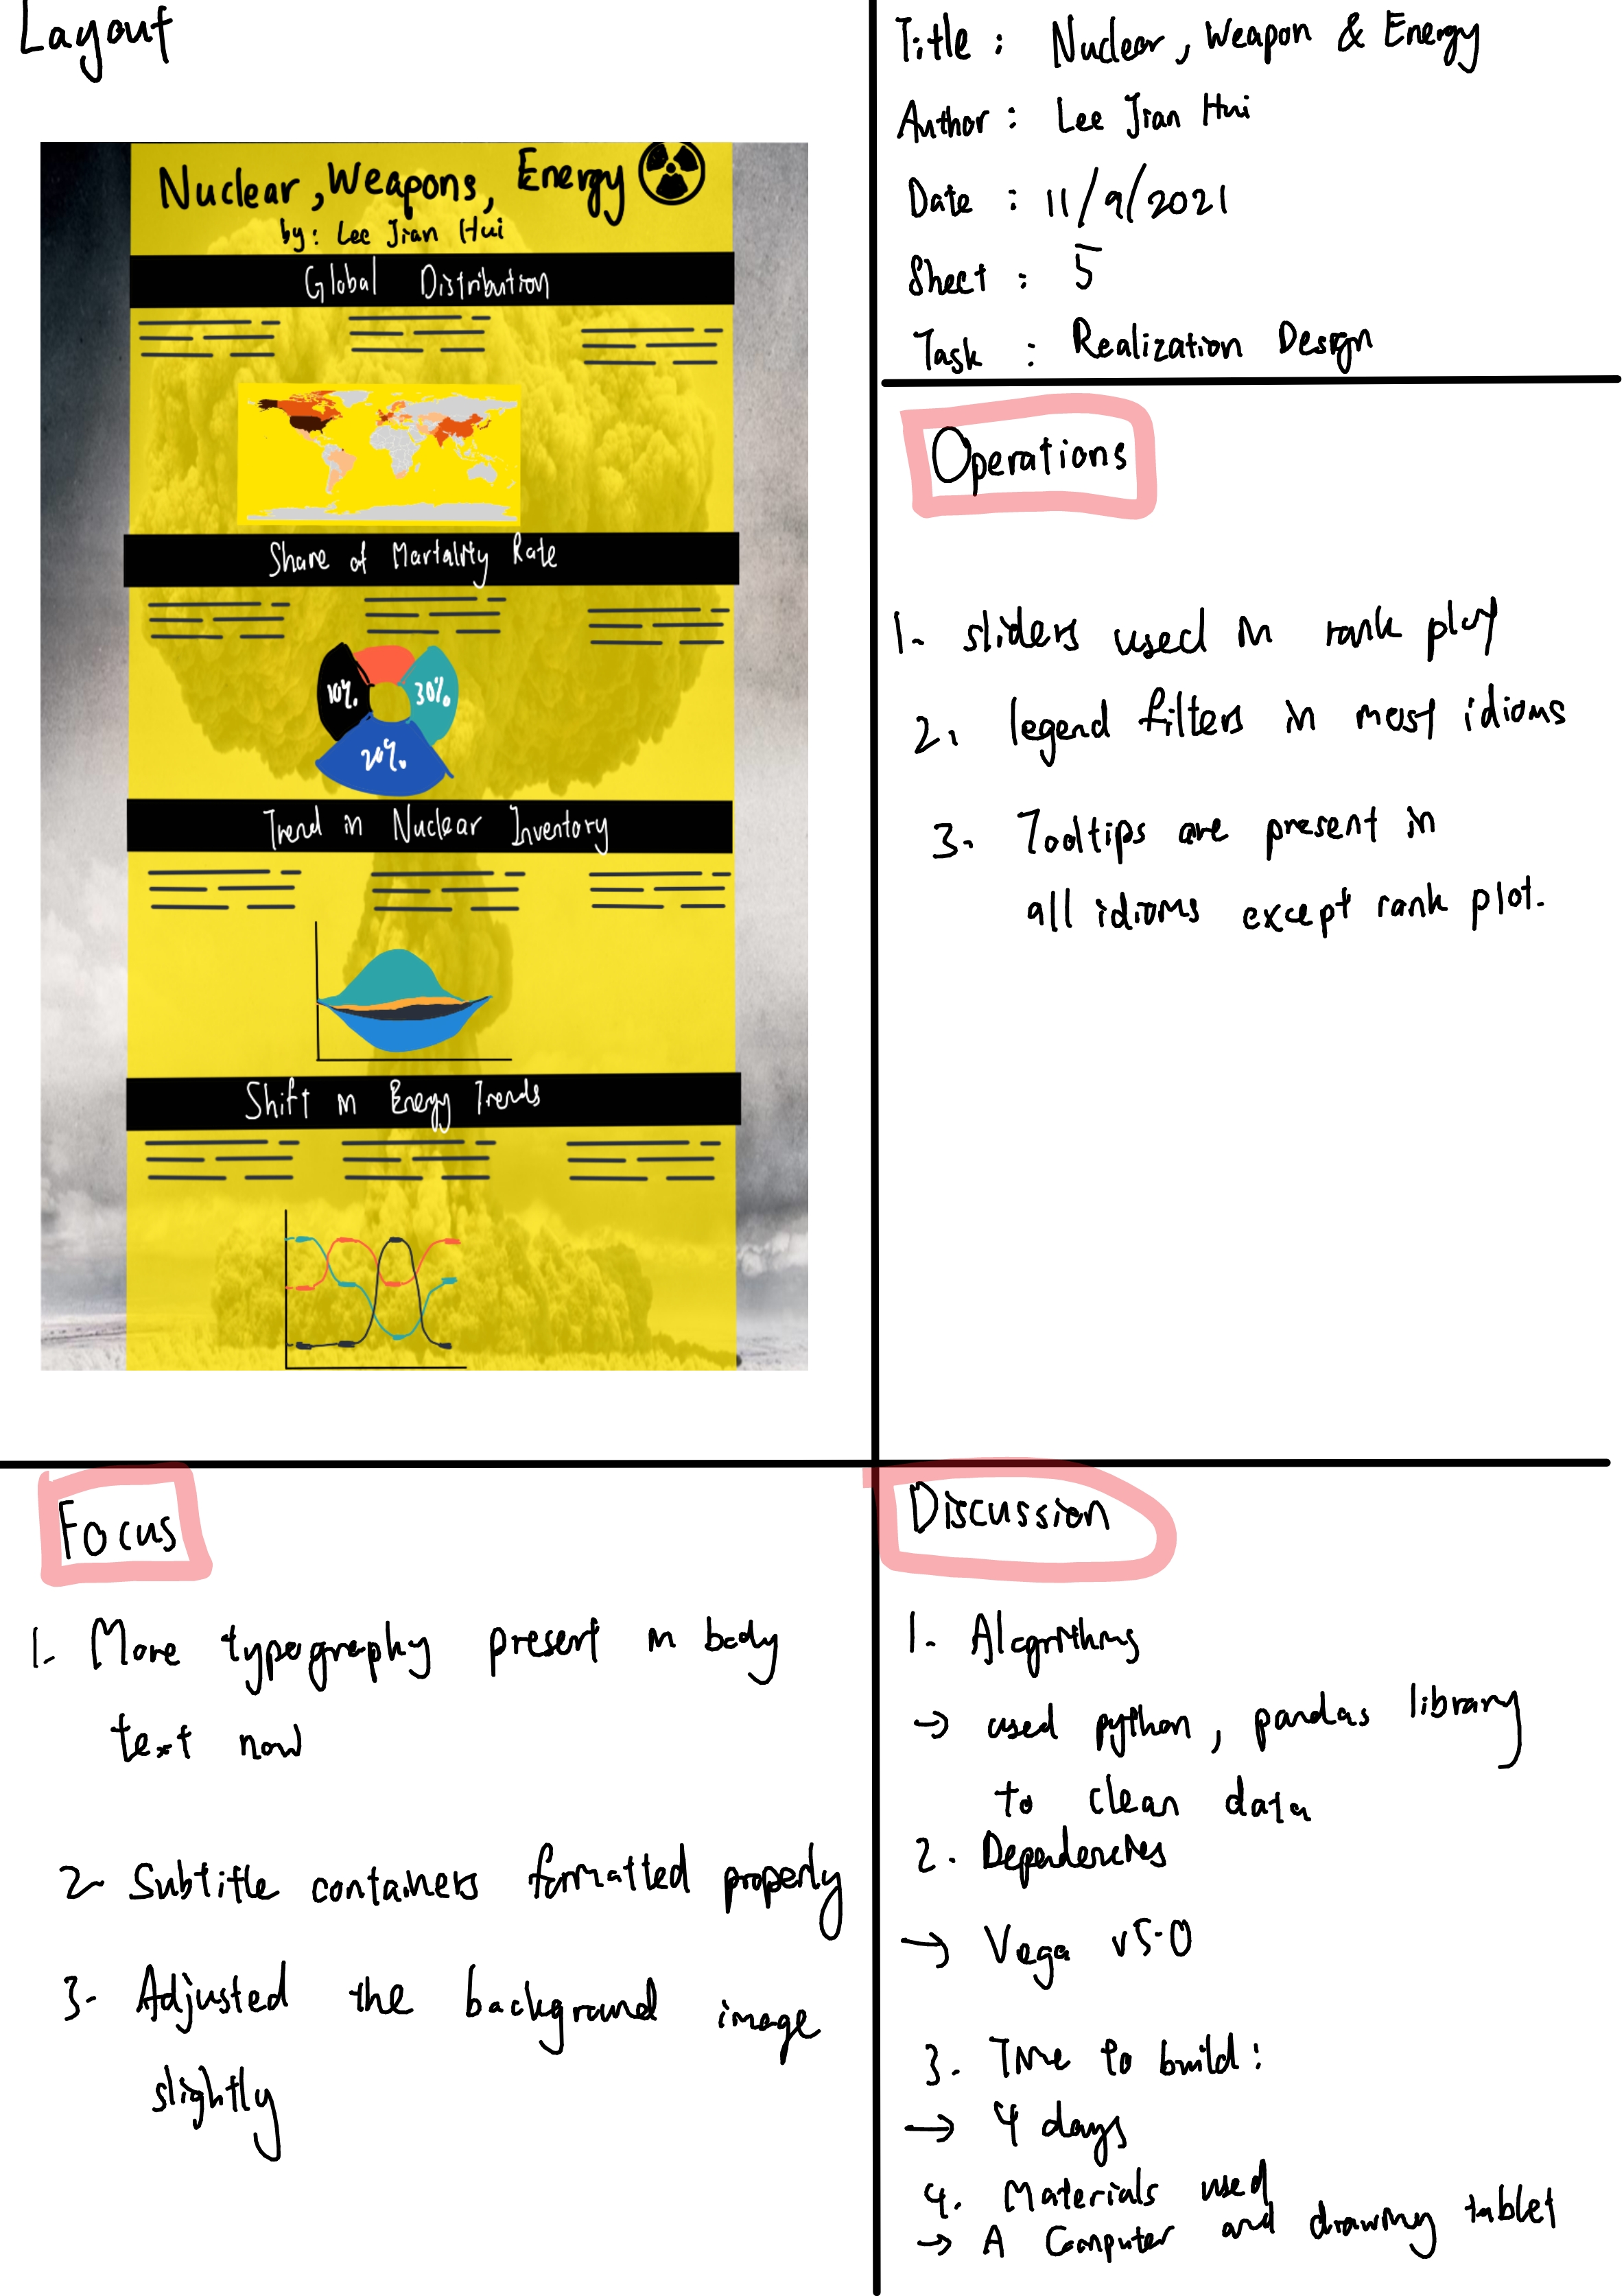 Layout
Nuclear, Weapons, Energy
by: Lee Jian Hui
Global Distribution
Share of Martality Rate
10%.
30%.
20%.
Trend in Nuclear Inventory
Shift in Energy Trends
Title : Nuclear, Weapon & Energy
Author : Lee Jian Hui
Date : 11/9/2021
Sheet : 5
Task : Realization Design
Operations
1. sliders used in rank plot
2. legend filters in most idioms
3. Tooltips are present in
all idioms except rank plot.
Focus
1. More typography present in body
text now
2. Subtitle containers formatted properly
3. Adjusted the background image
slightly
Discussion
1. Algorithms
→ used python, pandas library
to clean data
2. Dependencies
→ Vega v5.0
3. Time to build:
→ 4 days
4. Materials used
→ A Computer and drawing tablet